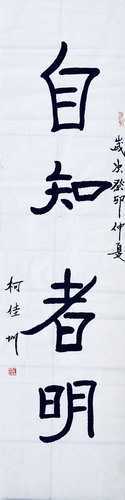 自知者明
歲次癸卯仲夏
柯佳圳